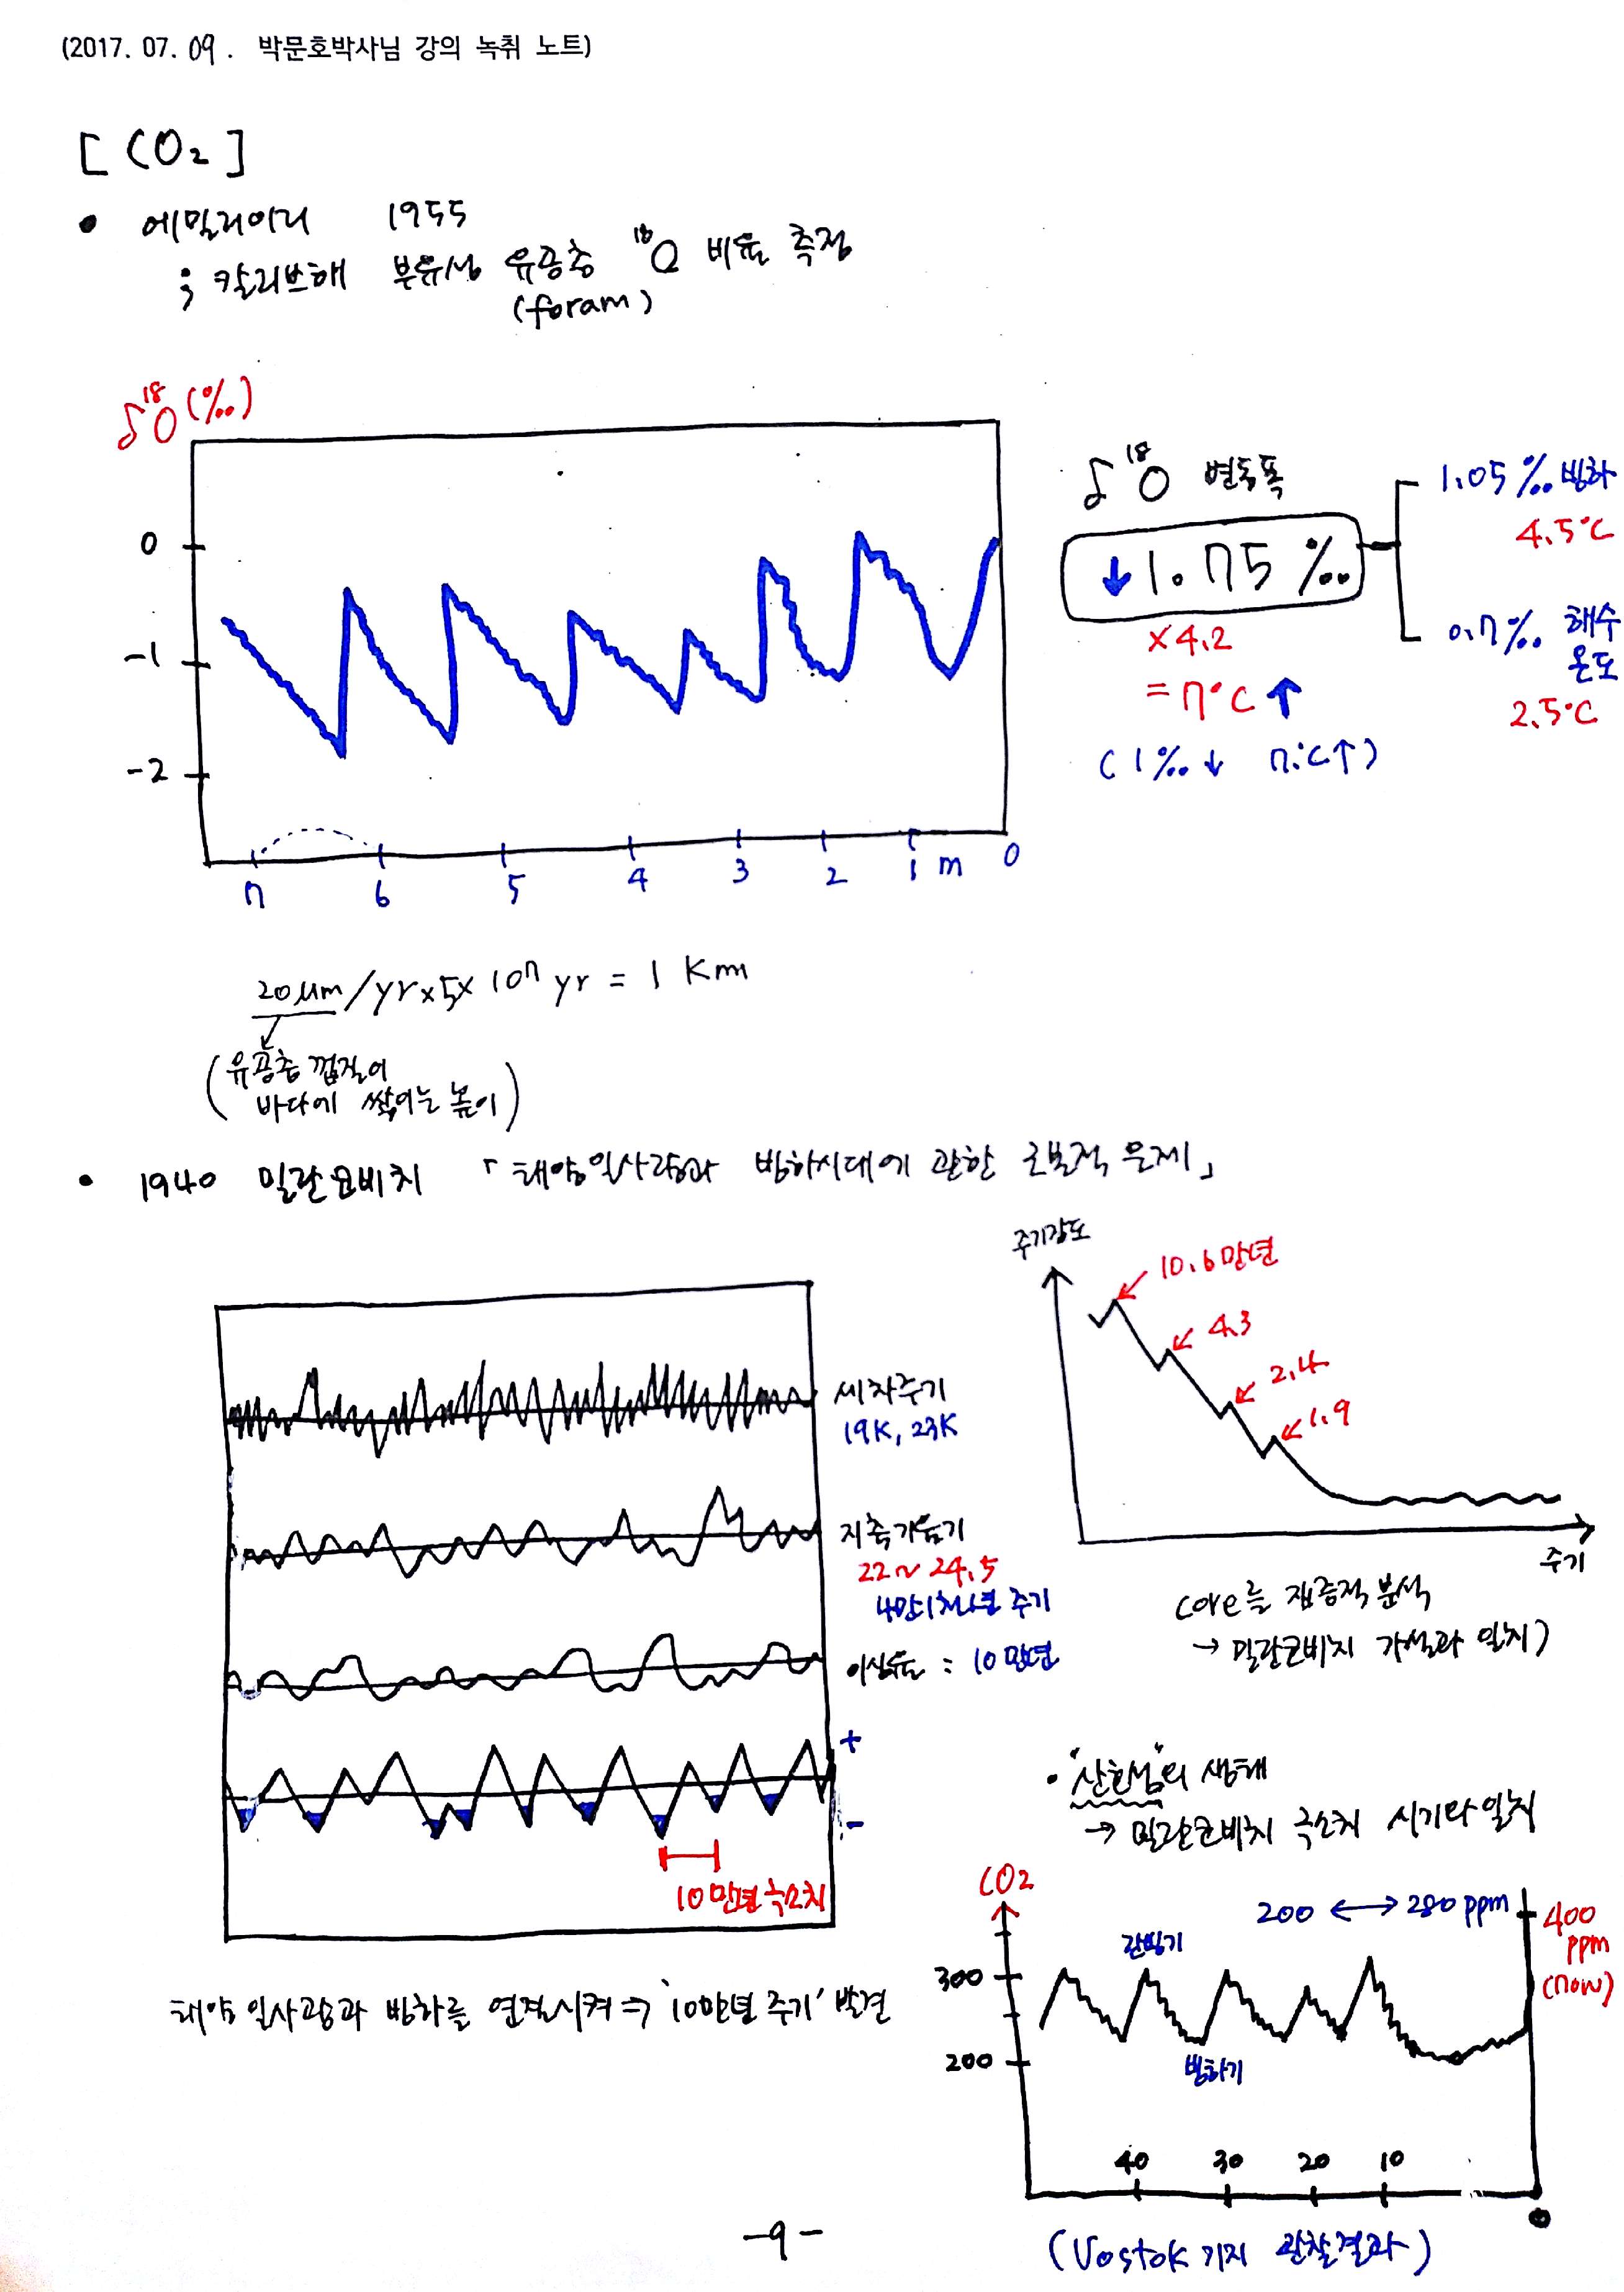 (2017. 07. 09. 박문호박사님 강의 녹취 노트)
[CO₂]
• 에밀리아니 1955
; 칼리브해 부유성 유공충 ¹⁸O 비율 측정
(foram)
δ¹⁸O (‰)
0
-1
-2
7 6 5 4 3 2 1 m 0
δ¹⁸O 변동폭
↓1.75 ‰
×4.2
= 7°C ↑
(1‰↓ 7°C↑)
1.05‰ 빙하
4.5°C
0.7‰ 해수
온도
2.5°C
20μm/yr × 5 × 10⁷ yr = 1 Km
(유공충 껍질이
바다에 쌓이는 높이)
• 1940 밀란코비치 「태양일사량과 빙하시대에 관한 근본적 문제」
세차주기
19K, 23K
지축기울기
22~24.5
4만1천년 주기
이심율 : 10만년
+
-
10만년 극소치
태양 일사량과 빙하를 연결시켜 ⇒ '10만년 주기' 발견
주기강도
10.6만년
4.3
2.4
1.9
주기
core를 집중적 분석
→ 밀란코비치 가설과 일치)
• 의 생태
→ 밀란코비치 극소치 시기와 일치
CO2
200 ↔ 280 ppm
400
ppm
(now)
간빙기
300
200
빙하기
40 30 20 10 0
(Vostok 기지 관찰결과)
-9-